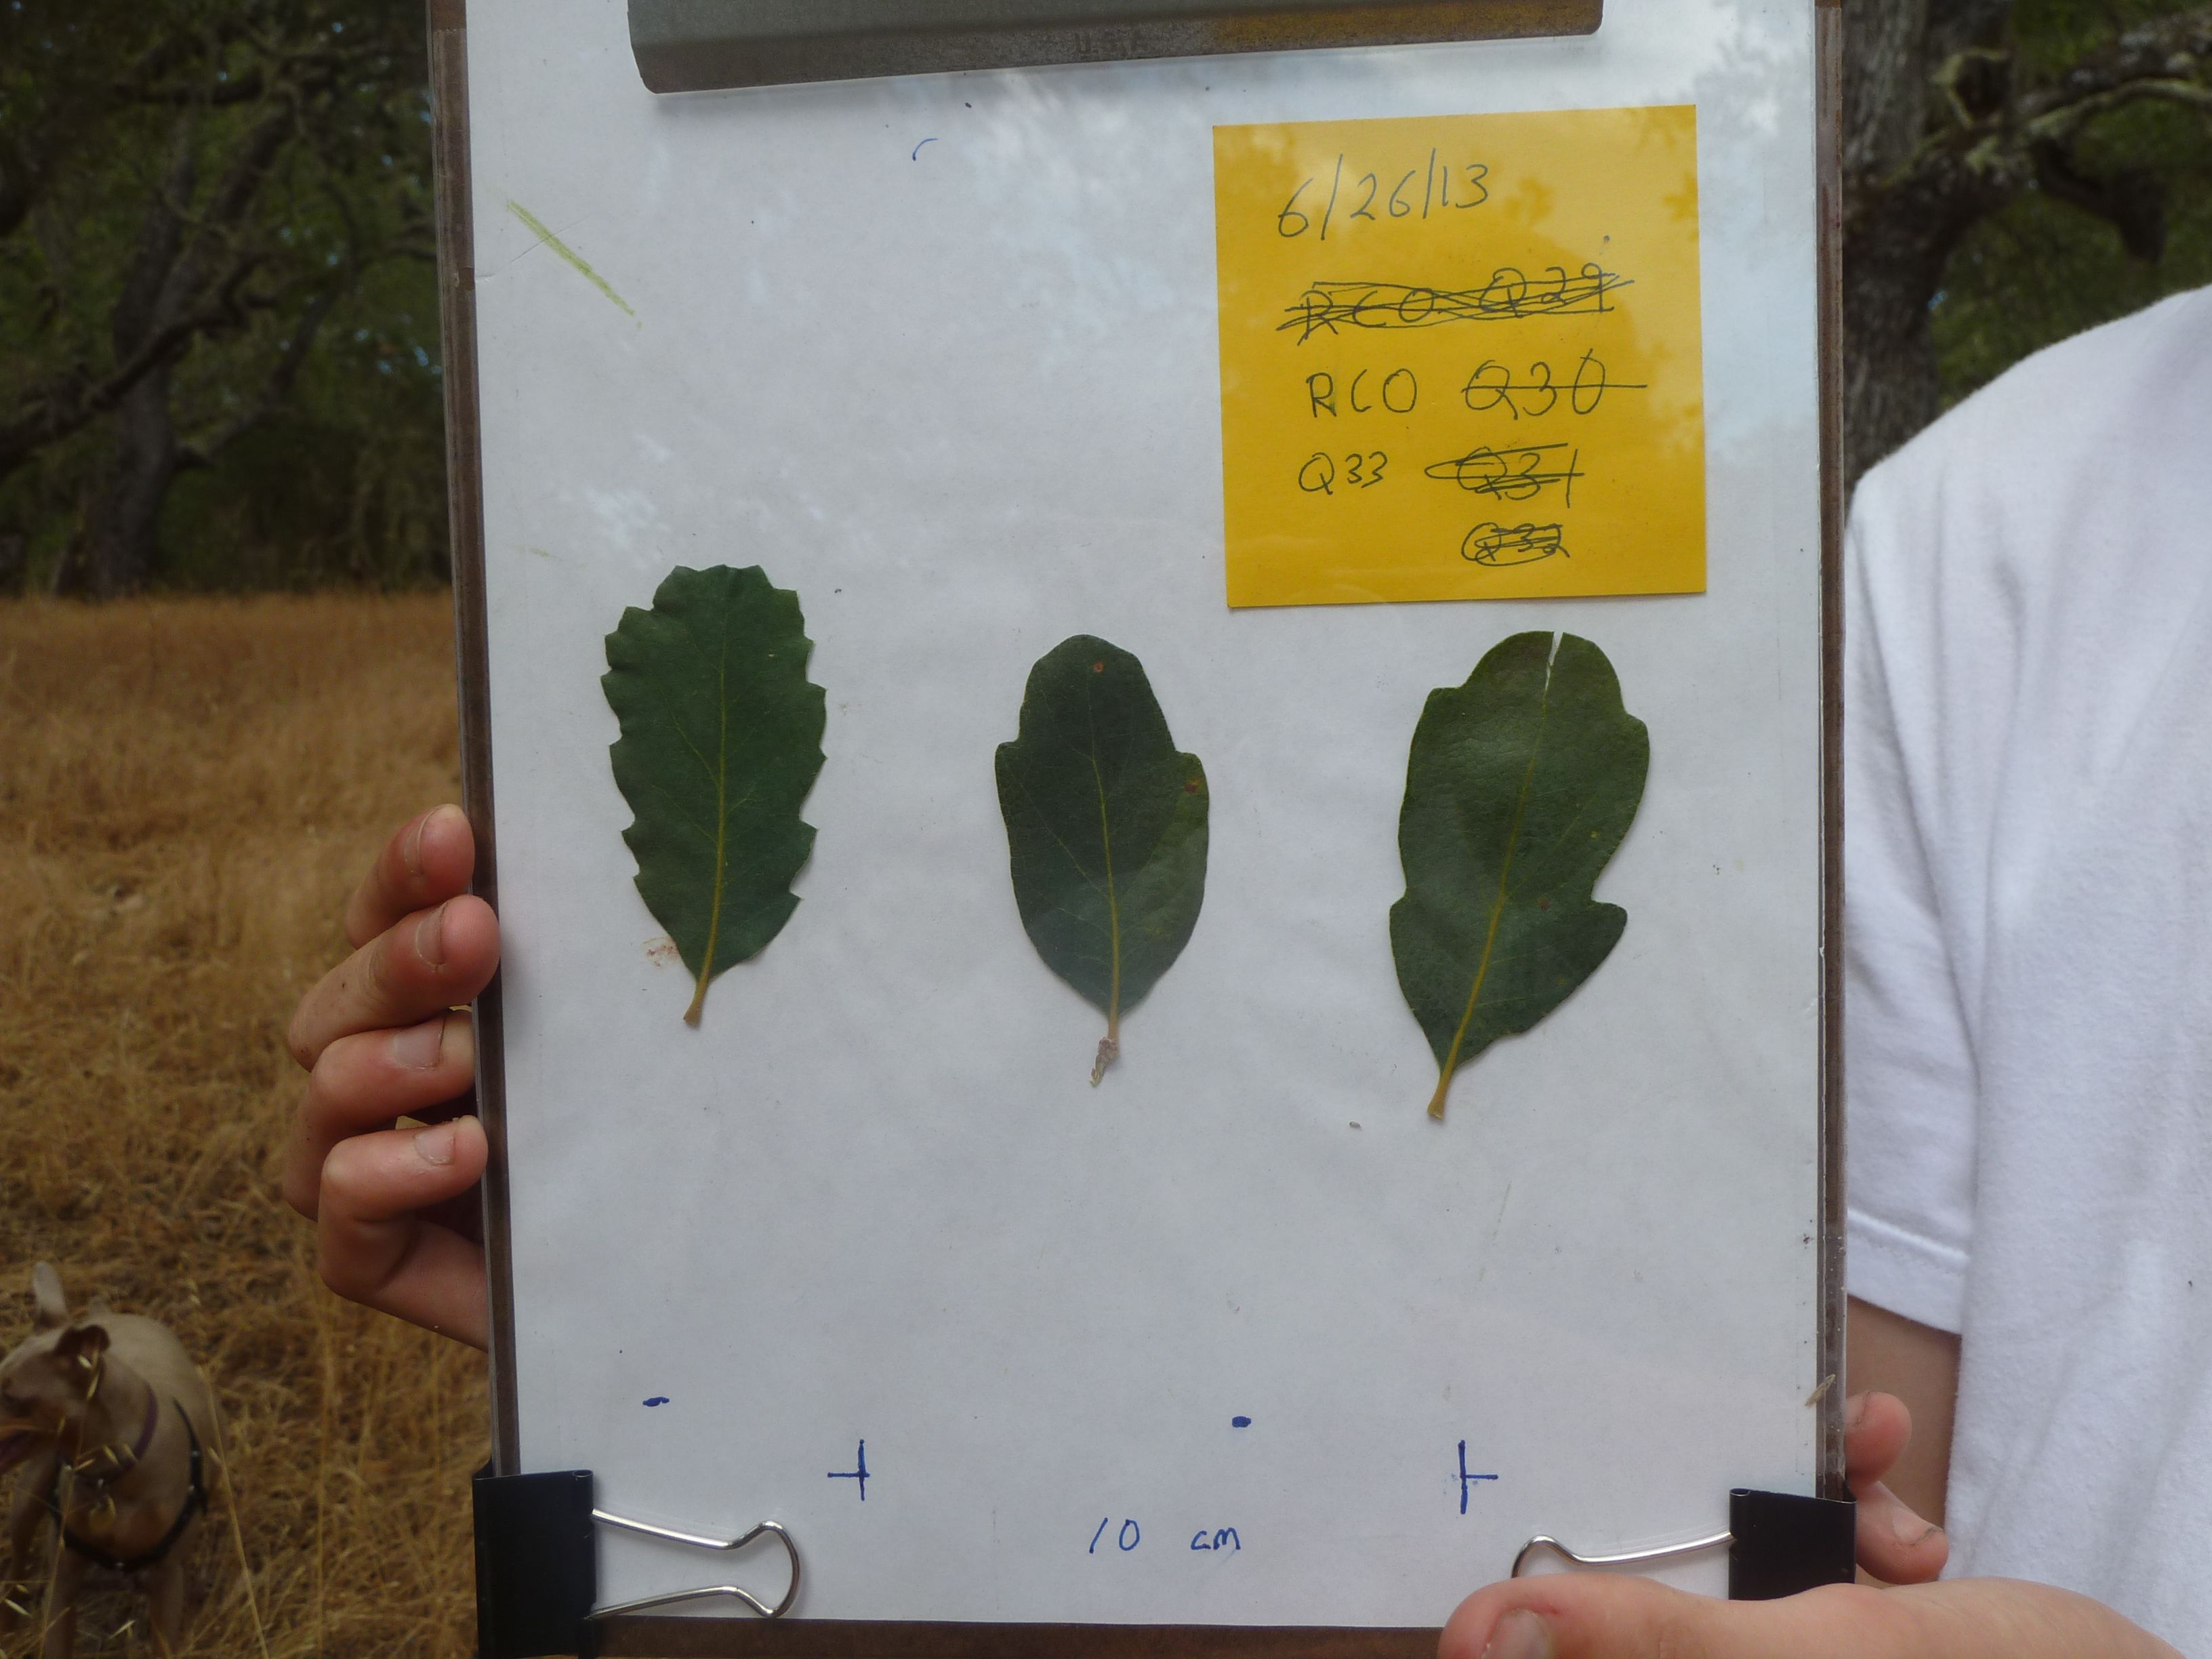 6/26/13
RCO Q29
RCO Q30
Q33 Q31
Q32
10 cm